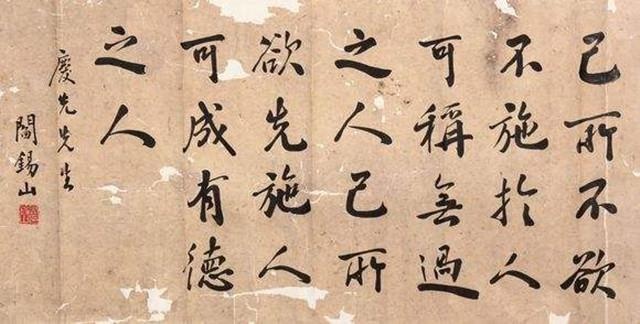 己所不欲
不施於人
可稱無過
之人己所
欲先施人
可成有德
之人
慶先先生
閻錫山